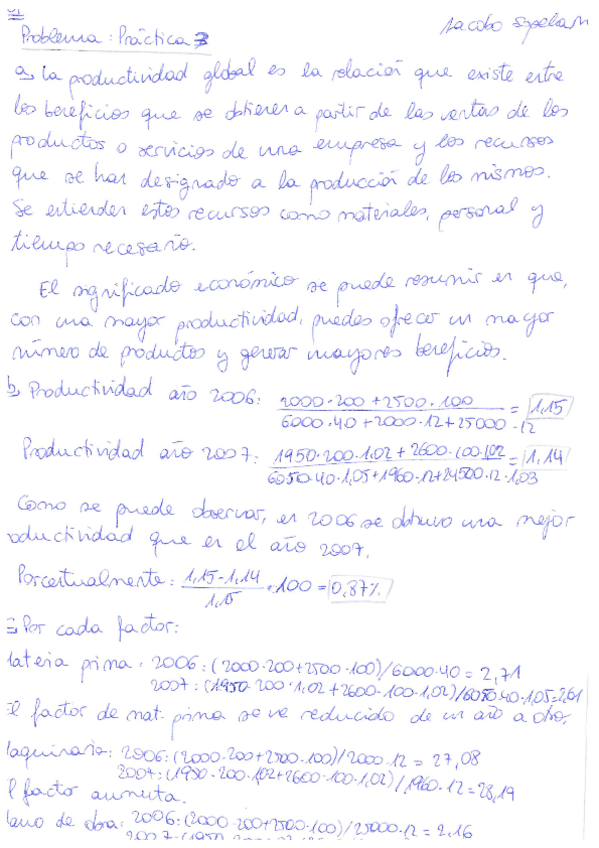 Problema: Práctica 3
Jacobo
a, La productividad global es la relación que existe entre
los beneficios que se obtienen a partir de las ventas de los
productos o servicios de una empresa y los recursos
que se han designado a la producción de los mismos.
Se entienden estos recursos como materiales, personal y
tiempo necesario.
El significado económico se puede resumir en que,
con una mayor productividad, puedes ofrecer un mayor
número de productos y generar mayores beneficios.
b, Productividad año 2006: 2000·200 + 2500·100 / 6000·40 + 2000·12 + 25000·12 = 1,15
Productividad año 2007: 1950·200·1,02 + 2600·100·1,02 / 6050·40·1,05 + 1960·12 + 24500·12·1,03 = 1,14
Como se puede observar, en 2006 se obtuvo una mejor
oductividad que en el año 2007.
Porcentualmente: 1,15-1,14 / 1,15 · 100 = 0,87%
Por cada factor:
lateria prima: 2006: (2000·200+2500·100)/6000·40 = 2,71
2007: (1950·200·1,02+2600·100·1,02)/6050·40·1,05=2,61
El factor de mat. prima se ve reducido de un año a otro.
laquinaria: 2006: (2000·200+2500·100)/2000·12 = 27,08
2007: (1950·200·1,02+2600·100·1,02)/1960·12=28,19
l factor aumenta.
lano de obra: 2006: (2000·200+2500·100)/25000·12 = 2,16